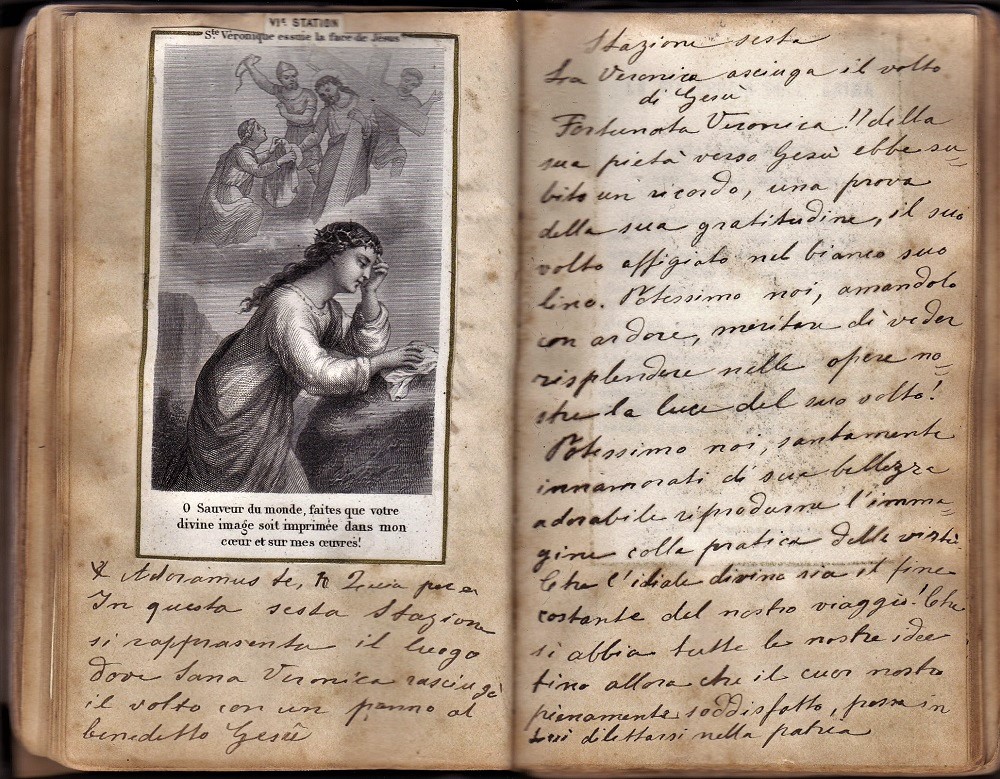 VIe. STATION
Ste Véronique essuie la face de Jésus
O Sauveur du monde, faites que votre
divine image soit imprimée dans mon
cœur et sur mes œuvres!
Adoramus te,
In questa sesta Stazione
si rappresenta il luogo
dove Sana Veronica rasciugò
il volto con un panno al
benedetto Gesù
Stazione sesta
La Veronica asciuga il volto
di Gesù
Fortunata Veronica!! della
sua pietà verso Gesù ebbe su=
bito un ricordo, una prova
della sua gratitudine, il suo
volto affigiato nel bianco suo
lino. Potessimo noi, amandolo
con ardore, meritare di veder
risplendere nelle opere no=
stre la luce del suo volto!
Potessimo noi, santamente
innamorati di sua bellezza
adorabile riprodurre l'imma=
gine colla pratica delle virtù.
Che l'idiale divino sia il fine
costante del nostro viaggio! Che
si abbia tutte le nostre idee
fino allora che il cuor nostro
pienamente soddisfatto, possa in
Lui dilettarsi nella patria